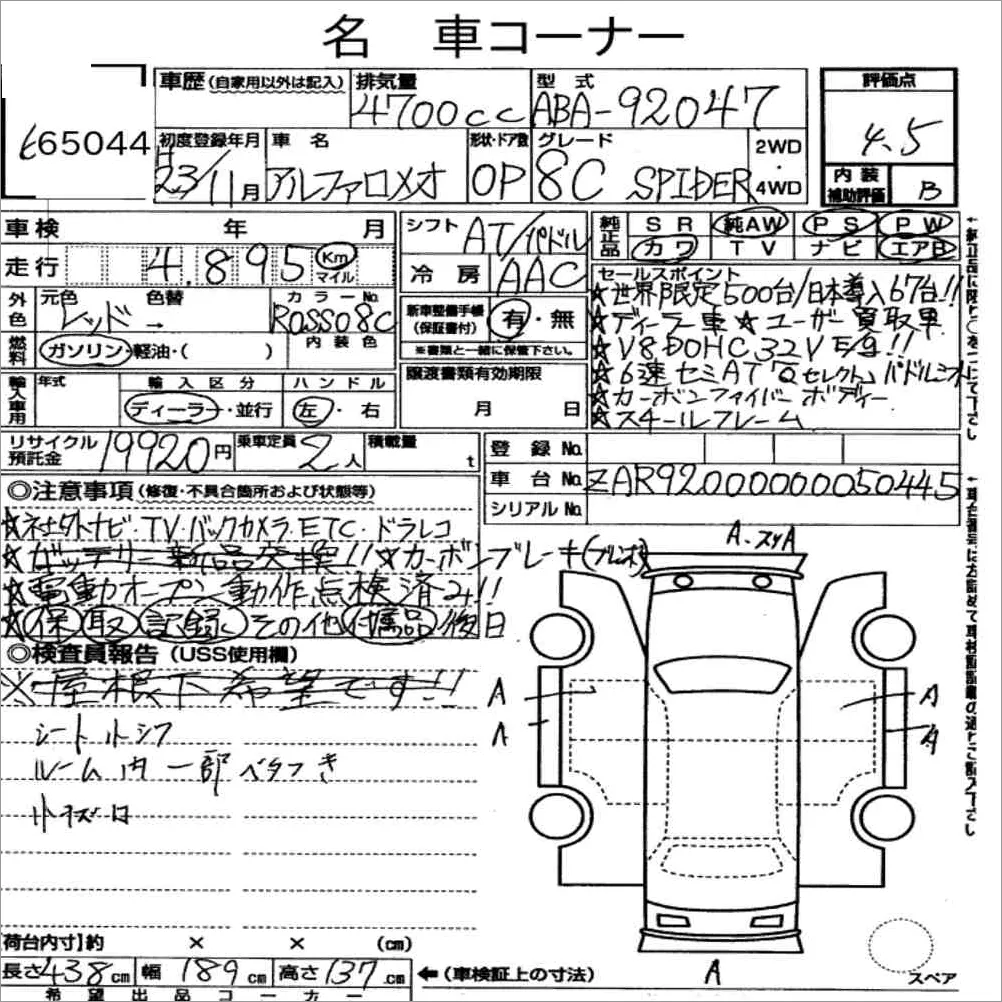 名 車コーナー
665044
車歴(自家用以外は記入) 排気量 4700cc 型式 ABA-92047 評価点 4.5
初度登録年月 23/11月 車名 アルファロメオ 形状・ドア数 OP グレード 8C SPIDER 2WD・4WD 内装補助評価 B
車検 年 月 シフト AT/パドル 純正品 SR 純AW PS PW
カワ TV ナビ エアB
走行 4.895 Km マイル 冷房 AAC
外色 元色 レッド → 色替 カラーNo. ROSSO8C 内装色
新車整備手帳(保証書付) 有・無
※書類と一緒に保管下さい。
燃料 ガソリン・軽油・( )
輸入車用 年式 輸入区分 ディーラー・並行 ハンドル 左・右
譲渡書類有効期限 月 日
セールスポイント
★世界限定500台/日本導入67台!!
★ディーラー車 ★ユーザー買取車
★V8 DOHC 32V E/g!!
★6速セミAT「Qセレクト」パドルシフト
★カーボンファイバーボディー
★スチールフレーム
リサイクル預託金 19920円 乗車定員 2人 積載量 t
登録No.
車台No. ZAR92000000050445
シリアルNo.
◎注意事項(修復・不具合箇所および状態等)
★社外ナビ・TV・バックカメラ・ETC・ドラレコ
★バッテリー新品交換!! ★カーボンブレーキ(ブレンボ)
★電動オープン動作点検済み!!
★保 取 記録 その他付属品後日
◎検査員報告(USS使用欄)
※屋根下希望です!!
シート小シワ
ルーム内一部ベタつき
小キズ
A・スリA
A
A
A
A
A
スペア
【荷台内寸】約 × × (cm)
長さ 438cm 幅 189cm 高さ 137cm ←(車検証上の寸法)
希望出品コーナー